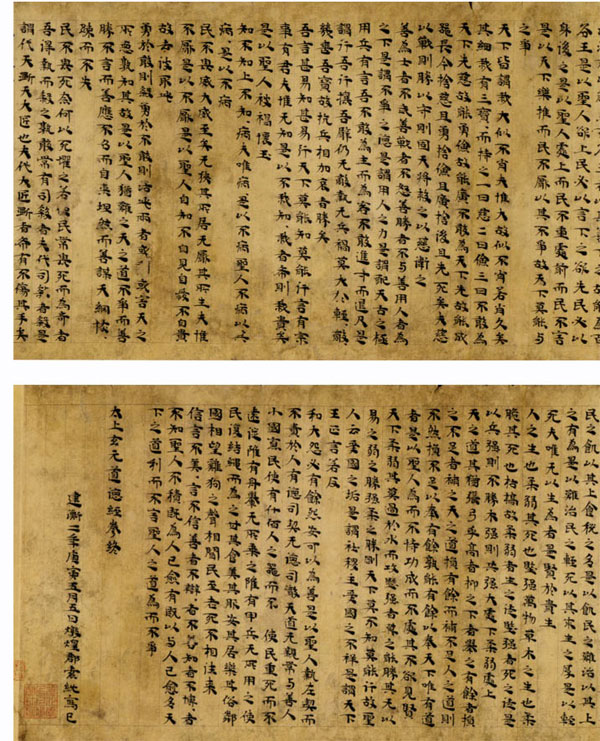 谷王是以聖人欲上民必以言下之欲先民必以
身後之是以聖人處上而民不重處前而民不言
是以天下樂推而民不厭以其不爭故天下莫能與
之爭
天下皆謂我大似不肖夫惟大故似不肖若肖久矣
其細我有三寶而持之一曰慈二曰儉三曰不敢為
天下先慈故能勇儉故能廣不敢為天下先故能成
器長今捨慈且勇捨儉且廣捨後且先死矣夫慈
以戰則勝以守則固天將救之以慈衛之
善為士者不武善戰者不怒善勝者不与善用人者為
之下是謂不爭之德是謂用人之力是謂配天古之極
用兵有言吾不敢為主而為客不敢進寸而退尺是
謂行无行攘无臂仍无敵執无兵禍莫大於輕敵
喪吾寶故抗兵相加哀者勝矣
吾言甚易知甚易行天下莫能知莫能行言有宗
事有君夫惟无知是以不我知知我者希則我貴矣
是以聖人被褐懷玉
知不知上不知知病夫唯病病是以不病聖人不病以其
病病是以不病
民不畏威大威至矣无狹其所居无厭其所生夫惟
不厭是以不厭是以聖人自知不自見自愛不自貴
故去彼取此
勇於敢則煞勇於不敢則活此兩者或利或害天之
所惡孰知其故是以聖人猶難之天之道不爭而善
勝不言而善應不召而自來然而善謀天網恢恢
踈而不失
民不畏死奈何以死懼之若使民常畏死而為奇者
吾得執而煞之孰敢常有司煞者夫代司煞者是
謂代大匠斲夫代大匠斲者希有不傷其手矣
民之飢以其上食稅之多是以飢民之難治以其上
之有為是以難治民之輕死以其求生之厚是以輕
死夫唯无以生為者是賢於貴生
人之生也柔弱其死也堅強萬物草木之生也柔
脆其死也枯槁故柔弱者生之徒堅強者死之徒是
以兵強則不勝木強則共強大處下柔弱處上
天之道其猶張弓乎高者抑之下者舉之有餘者損
之不足者補之天之道損有餘而補不足人之道則
不然損不足以奉有餘孰能有餘以奉天下唯有道
者是以聖人為而不恃功成而不處其不欲見賢
天下柔弱莫過於水而攻堅強者莫之能勝其无以
易之弱之勝強柔之勝剛天下莫不知莫能行故聖
人云受國之垢是謂社稷主受國之不祥是謂天下
王正言若反
和大怨必有餘怨安可以為善是以聖人執左契而
不責於人有德司契无德司徹天道无親常与善人
小國寡民使有什佰人之器而不 使民重死而不
遠徙雖有舟轝无所乘之雖有甲兵无所用之使
民復結繩而為之甘其食美其服安其居樂其俗鄰
國相望雞狗之聲相聞民至老死不相往來
信言不美美言不信善者不辯辯者不善知者不博博者
不知聖人不積既為人己愈有既以与人己愈多天
下之道利而不害聖人之道為而不爭
太上玄元道德經卷終
建衡二年庚寅五月五日燉煌郡索紞寫已